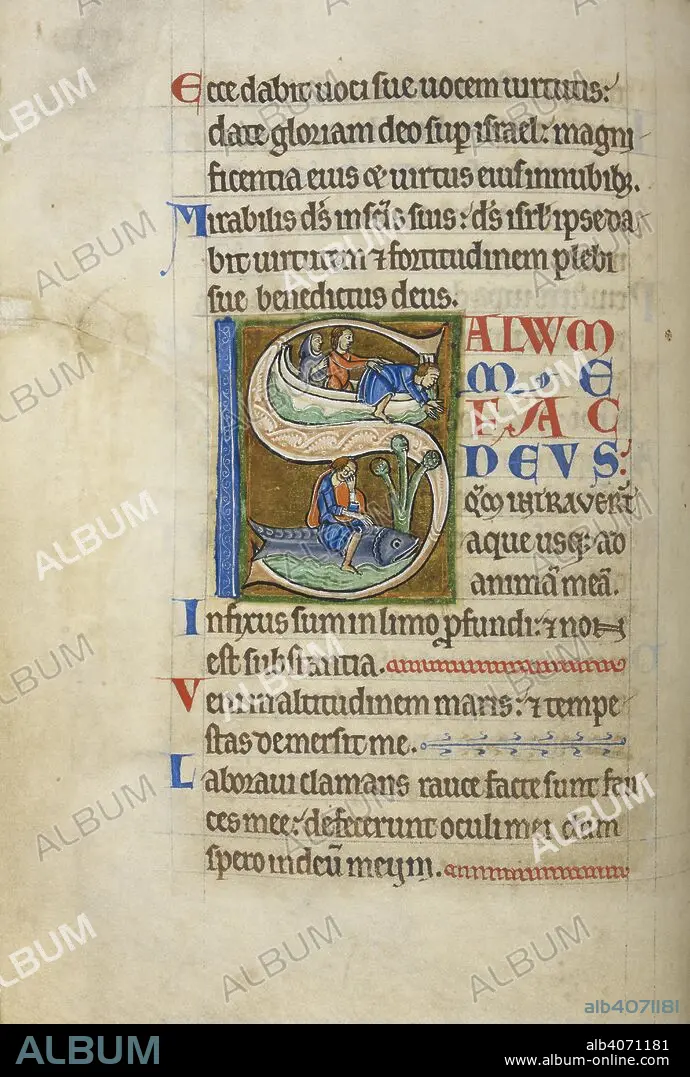 Ecce dabit uoci sue uocem uirtutis:
date gloriam deo sup israel: magni
ficentia eius & uirtus eius in nubibꝫ.
Mirabilis ds in scis suis: ds isrl ipse da
bit uirtutem ⁊ fortitudinem plebi
sue benedictus deus.
SALWM
M E
FAC
DEVS:
qm intrauert
aque usqꝫ ad
animā meā.
Infixus sum in limo pfundi: ⁊ non
est substantia.
Veni in altitudinem maris: ⁊ tempe
stas demersit me.
Laboraui clamans rauce facte sunt fau
ces mee: defecerunt oculi mei dum
spero in deū meum.
alb4071181
ALBUM
alb4071181
www.album-online.com